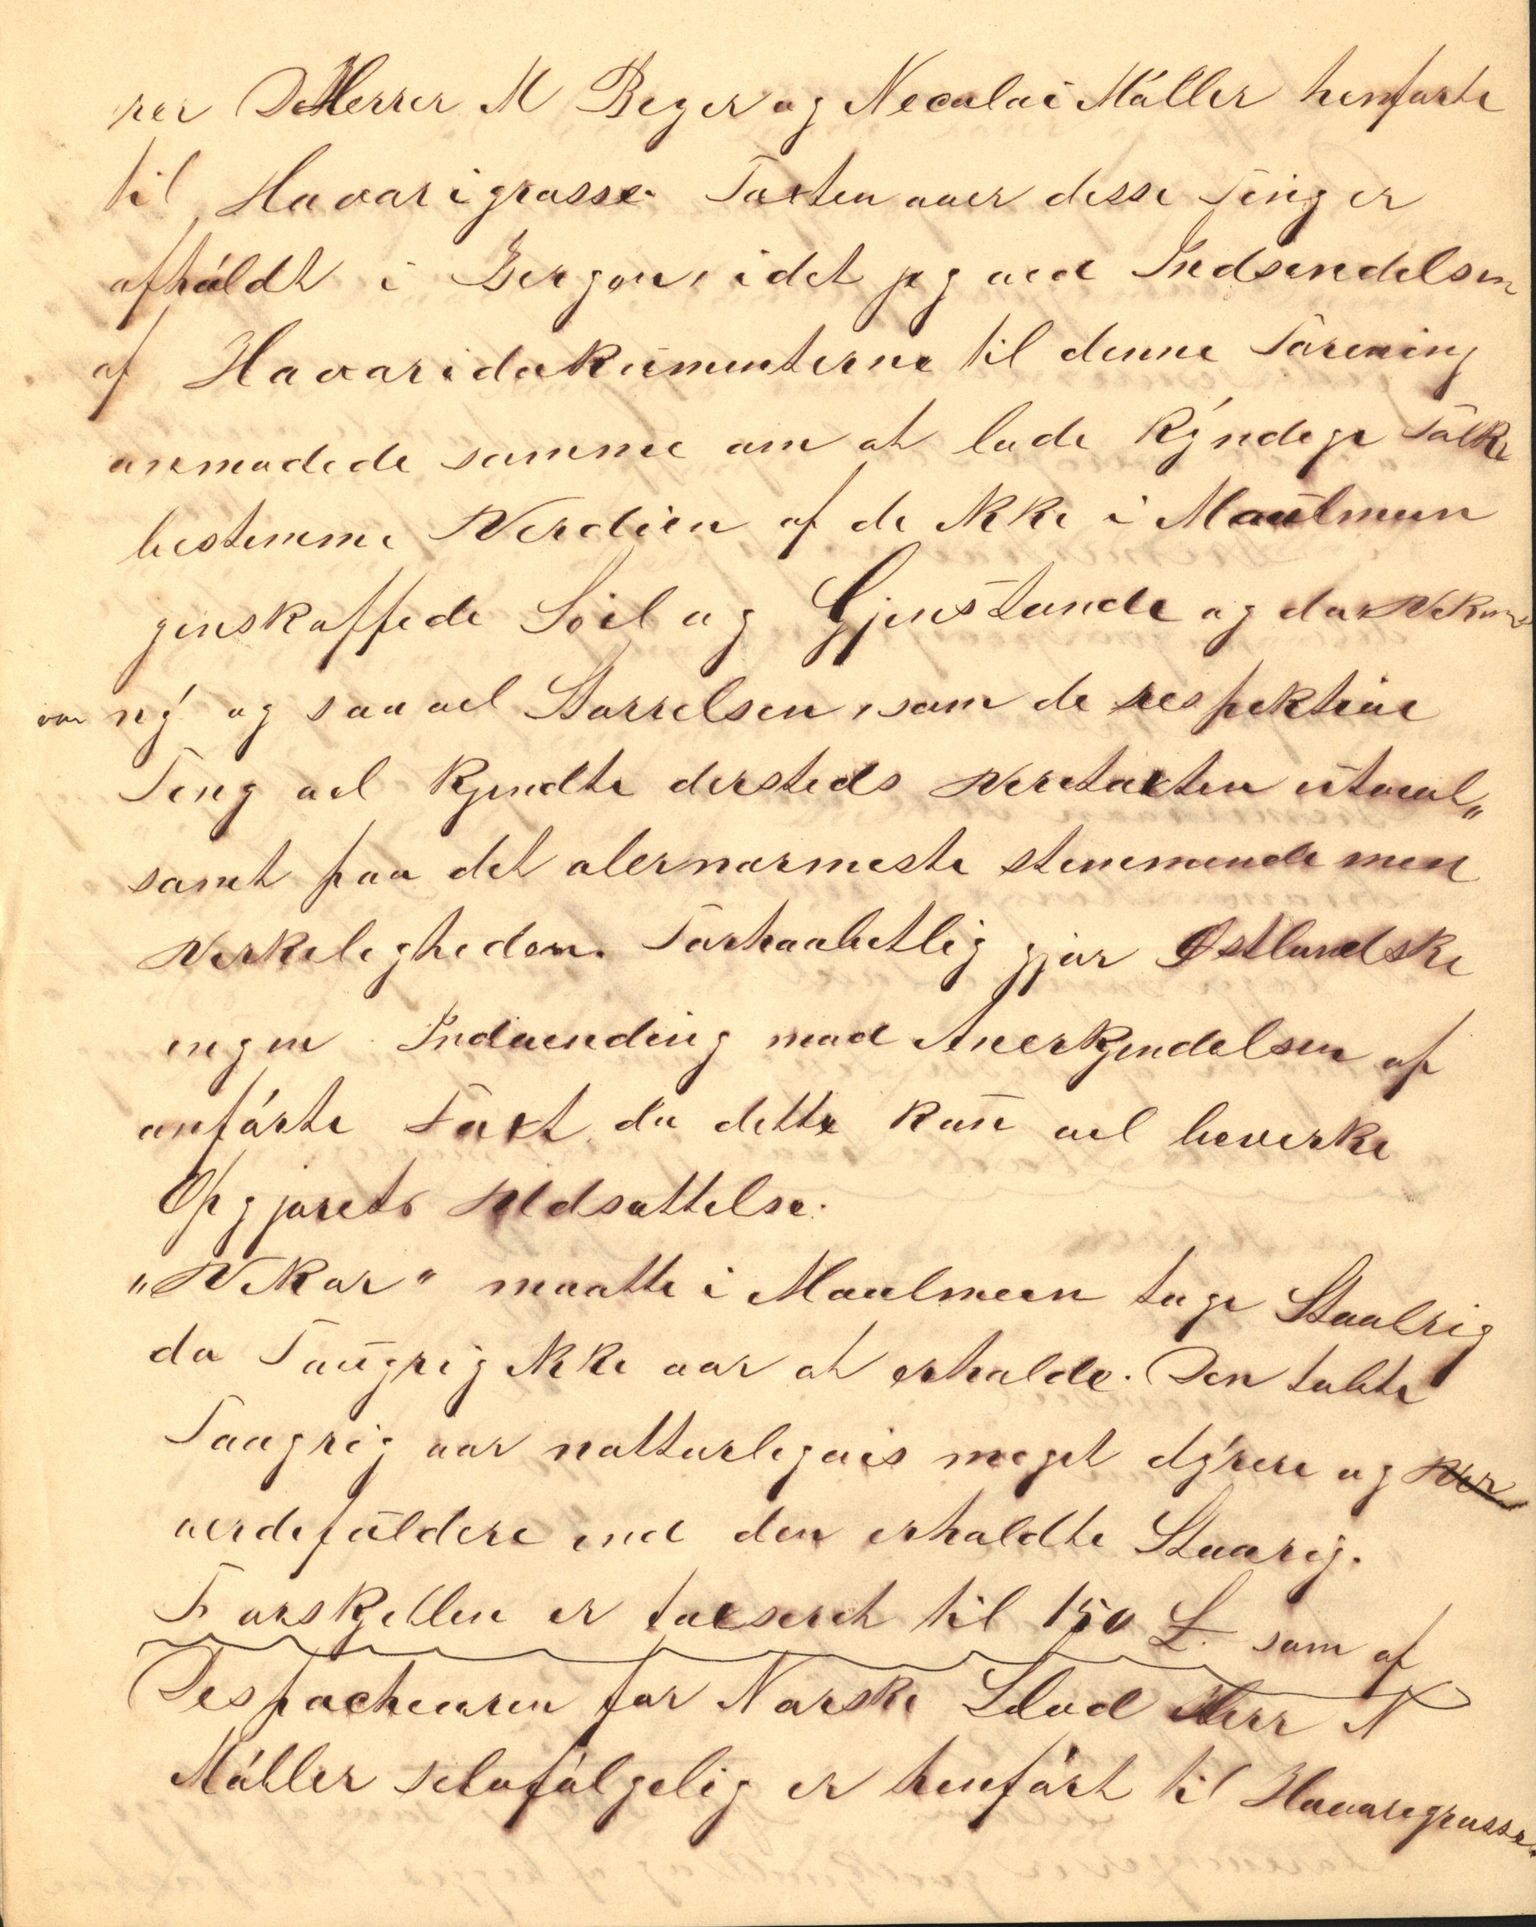 rer DeHerrer M Beyer og Necolai Möller henførte
til Havarigrosse. Taxten over desse Ting er
afhøldt i Bergen, idet jeg ved Indsendelsen
af Havaridokumenterne til denne Forening
anmodede samme om at lade kyndege Folk
bestemme Verdien af de ikke i Maulmeen
genskaffede Seil og Gjenstande og da Vikar
var ny og saavel Størrelsen, som de respektive
Ting vel kjendte dersteds Veretaxten utvivl„
somt paa det alernærmeste stemmende med
Verkeligheden. Forhaabetlig gjør Østlandske
ingen Indvending mod Anerkjendelsen af
anførte Taxt, da dette kun vel bevirke
Opgjørets Uldsættelse.
„Vikar" maatte i Maulmeen tage Staalrig
da Taugrig ikke var at erholde. Den tabte
Taugrig var natturligvis meget dyrere og
verdefuldere end den erholdte Staarig.
Forskjellen er taxseret til 150 £. som af
Despacheuren for Norske Lloyd Herr N
Møller selvfølgelig er henført til Havarigrosse.